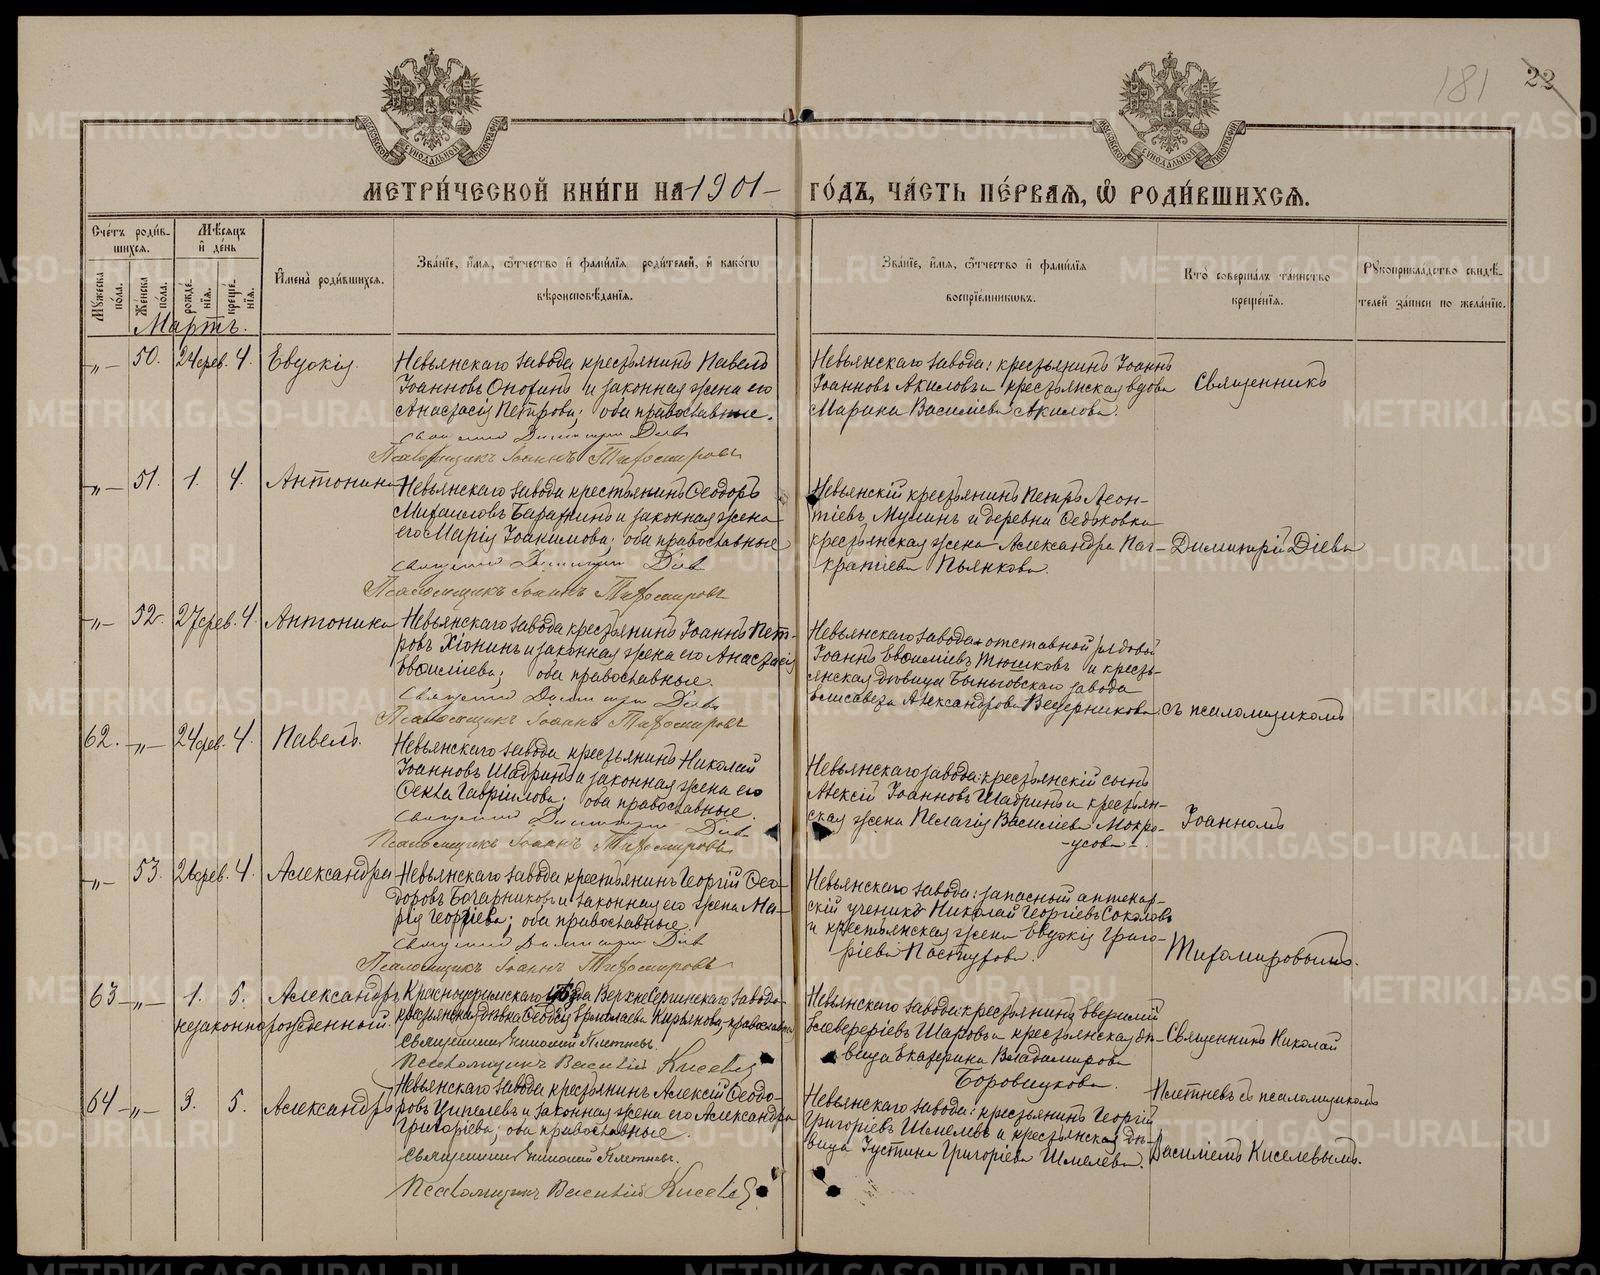 181 22
МЕТРИ́ЧЕСКОЙ КНИ́ГИ НА 1901 ГО́ДЪ, ЧА́СТЬ ПЕ́РВАѦ, Ѽ РОДИ́ВШИХСѦ.
Сче́тъ роди́в-
шихся.
Мѣ́сяцъ
и҆ де́нь
Мꙋ́жеска по́ла.
Же́нска по́ла.
рожде́нїя.
креще́нїя.
И҆мена̀ роди́вшихся.
Зва́нїе, и҆́мя, ѻ҆́тчество и҆ фамѝлїя роди́телей, и҆ како́гѡ
вѣроисповѣ́данїя.
Зва́нїе, и҆́мя, ѻ҆́тчество и҆ фами́лїя
воспрїе́мниковъ.
Кто̀ соверша́лъ та́инство
креще́нїя.
Рꙋкоприкла́дство свидѣ́-
телей за́писи по жела́нїю.
Мартъ.
-„- 50. 24 фев. 4. Евдокія.
Невьянскаго завода крестьянинъ Павелъ
Іоанновъ Опохинъ и законная жена его
Анастасія Петрова; оба православные.
Священникъ Димитрій Діевъ
Псаломщикъ Іоаннъ Тихомировъ
Невьянскаго завода: крестьянинъ Іоаннъ
Іоанновъ Акиловъ и крестьянская вдова
Марина Василіева Акилова.
Священникъ
-„- 51. 1. 4. Антонина
Невьянскаго завода крестьянинъ Ѳеодоръ
Михаиловъ и законная жена
его Марія Іоакимова; оба православные
Священникъ Димитрій Діевъ
Псаломщикъ Іоаннъ Тихомировъ
Невьянскій крестьянинъ Петръ Леон-
тіевъ Мулинъ и деревни Ѳедьковки
крестьянская жена Александра Пан-
кратіева Пьянкова.
Димитрій Діевъ
-„- 52. 27 фев. 4. Антонина
Невьянскаго завода крестьянинъ Іоаннъ Пет-
ровъ Хіонинъ и законная жена его Анастасія
Евѳиміева; оба православные.
Священникъ Димитрій Діевъ
Псаломщикъ Іоаннъ Тихомировъ
Невьянскаго завода: отставной рядовой
Іоаннъ Евѳиміевъ Тюшковъ и кресть-
янская дѣвица Быньговскаго завода
Елисавета Александрова Ведерникова.
съ псаломщикомъ
62. -„- 24 фев. 4. Павелъ.
Невьянскаго завода крестьянинъ Николай
Іоанновъ Шадринъ и законная жена его
Ѳекла Гавріилова; оба православные.
Священникъ Димитрій Діевъ
Псаломщикъ Іоаннъ Тихомировъ
Невьянскаго завода: крестьянскій сынъ
Алексій Іоанновъ Шадринъ и крестьян-
ская жена Пелагія Василіева Мокро-
усова.
Іоанномъ
-„- 53. 26 фев. 4. Александра
Невьянскаго завода крестьянинъ Георгій Ѳео-
доровъ Бочарниковъ и законная его жена Ма-
рія Георгіева; оба православные.
Священникъ Димитрій Діевъ
Псаломщикъ Іоаннъ Тихомировъ
Невьянскаго завода: запасный аптекар-
скій ученикъ Николай Георгіевъ Соколовъ
и крестьянская жена Евдокія Григо-
ріева Пастухова.
Тихомировымъ.
63 -„- 1. 5. Александръ
незаконнорожденный.
Красноуфимскаго уѣзда Верхнесергинскаго завода
крестьянская дѣвка Ѳеодосія Ермолаева Кирьянова, православная
Священникъ Николай Плетневъ.
Псаломщикъ Василій Киселевъ
Невьянскаго завода: крестьянинъ
Елевферіевъ Шаровъ и крестьянская дѣ-
вица Екатерина Владимирова
Боровикова.
Священникъ Николай
Плетневъ съ псаломщикомъ
64 -„- 3. 5. Александръ
Невьянскаго завода крестьянинъ Алексій Ѳеодо-
ровъ Ципелевъ и законная жена его Александра
Григоріева; оба православные.
Священникъ Николай Плетневъ.
Псаломщикъ Василій Киселевъ
Невьянскаго завода: крестьянинъ Георгій
Григоріевъ Шмелевъ и крестьянская дѣ-
вица Іустина Григоріева Шмелева.
Василіемъ Киселевымъ.
METRIKI.GASO-URAL.RU